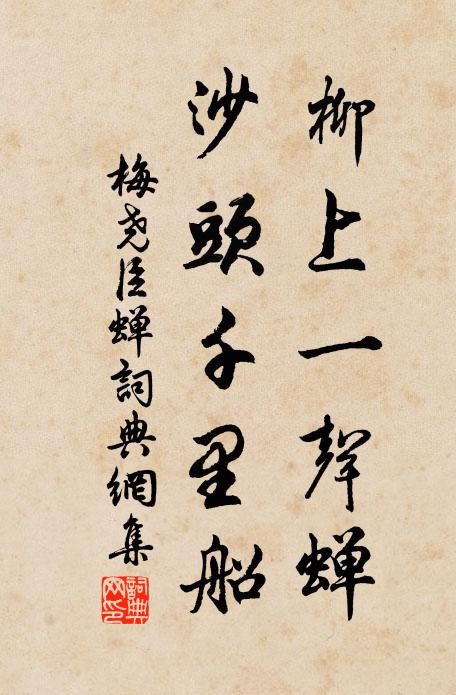 柳上一聲蝉
沙頭千里船
梅尧臣蝉詞典網集
詞典网印